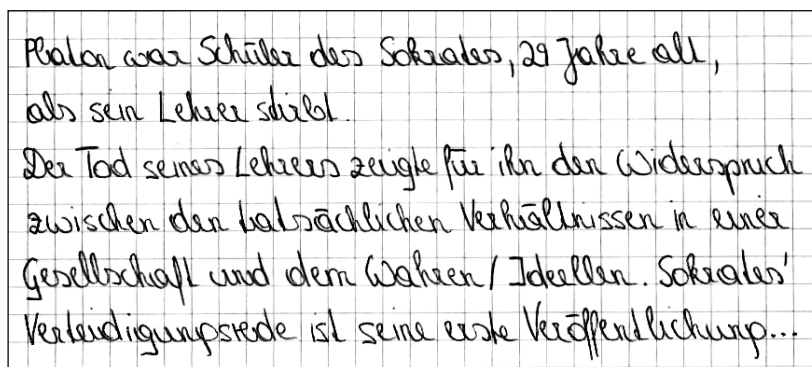 Platon war Schüler des Sokrates, 29 Jahre alt,
als sein Lehrer stirbt.
Der Tod seines Lehrers zeigte für ihn den Widerspruch
zwischen den tatsächlichen Verhältnissen in einer
Gesellschaft und dem Wahren / Ideellen. Sokrates'
Verteidigungsrede ist seine erste Veröffentlichung...